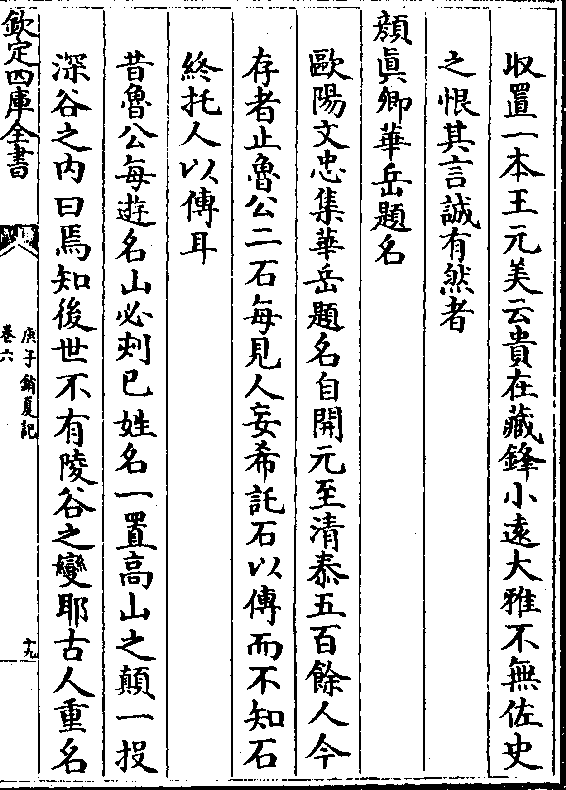 収置一本王元美云貴在藏鋒小遠大雅不無佐史
之恨其言誠有然者
顔眞卿華岳題名
歐陽文忠集華岳題名自開元至清泰五百餘人今
存者止魯公二石每見人妄希託石以傳而不知石
終托人以傳耳
昔魯公每遊名山必刻已姓名一置高山之顛一投
深谷之内曰焉知後世不有陵谷之變耶古人重名
欽定四庫全書
庚子銷夏記
卷六
十九